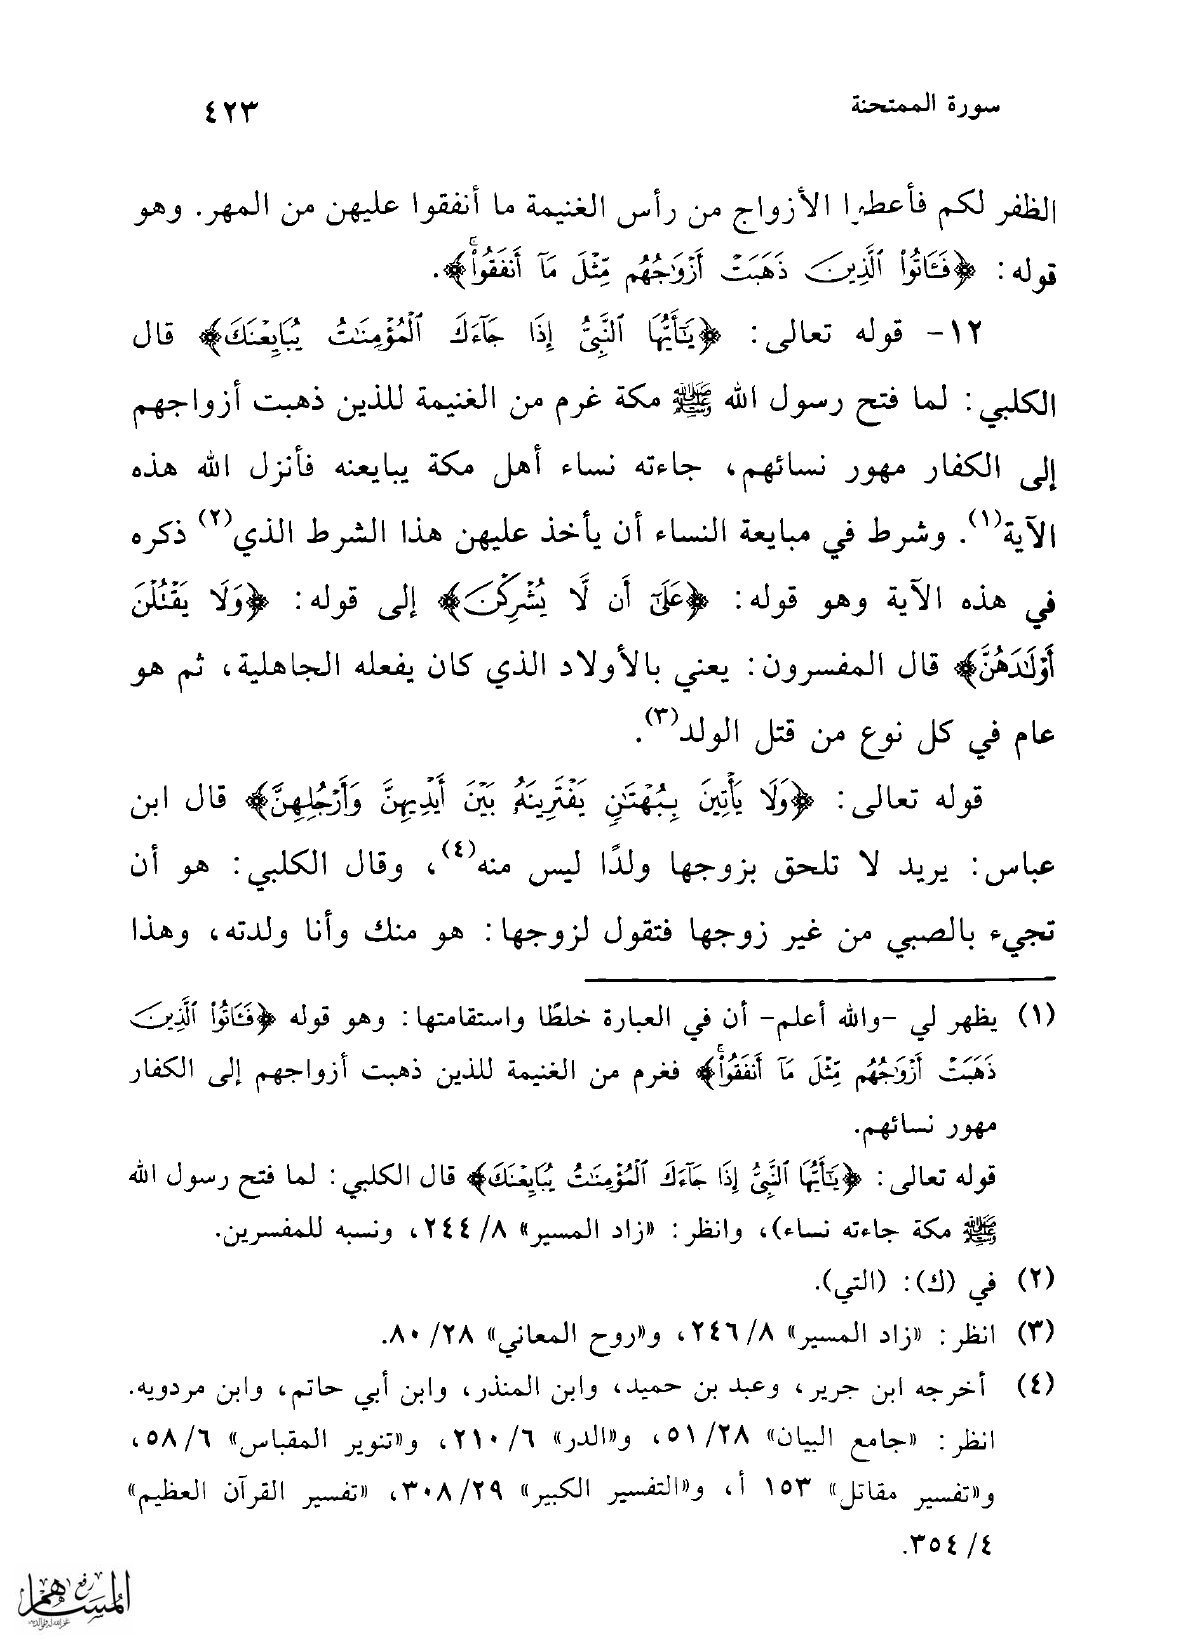 سورة الممتحنة
٤٢٣
الظفر لكم فأعطوا الأزواج من رأس الغنيمة ما أنفقوا عليهن من المهر. وهو
قوله: ﴿فَـَٔاتُوا۟ ٱلَّذِينَ ذَهَبَتْ أَزْوَٰجُهُم مِّثْلَ مَآ أَنفَقُوا۟ۚ﴾.
١٢- قوله تعالى: ﴿يَـٰٓأَيُّهَا ٱلنَّبِىُّ إِذَا جَآءَكَ ٱلْمُؤْمِنَـٰتُ يُبَايِعْنَكَ﴾ قال
الكلبي: لما فتح رسول الله ﷺ مكة غرم من الغنيمة للذين ذهبت أزواجهم
إلى الكفار مهور نسائهم، جاءته نساء أهل مكة يبايعنه فأنزل الله هذه
الآية(١). وشرط في مبايعة النساء أن يأخذ عليهن هذا الشرط الذي(٢) ذكره
في هذه الآية وهو قوله: ﴿عَلَىٰٓ أَن لَّا يُشْرِكْنَ﴾ إلى قوله: ﴿وَلَا يَقْتُلْنَ
أَوْلَـٰدَهُنَّ﴾ قال المفسرون: يعني بالأولاد الذي كان يفعله الجاهلية، ثم هو
عام في كل نوع من قتل الولد(٣).
قوله تعالى: ﴿وَلَا يَأْتِينَ بِبُهْتَـٰنٍ يَفْتَرِينَهُۥ بَيْنَ أَيْدِيهِنَّ وَأَرْجُلِهِنَّ﴾ قال ابن
عباس: يريد لا تلحق بزوجها ولدًا ليس منه(٤)، وقال الكلبي: هو أن
تجيء بالصبي من غير زوجها فتقول لزوجها: هو منك وأنا ولدته، وهذا
(١) يظهر لي -والله أعلم- أن في العبارة خلطًا واستقامتها: وهو قوله ﴿فَـَٔاتُوا۟ ٱلَّذِينَ
ذَهَبَتْ أَزْوَٰجُهُم مِّثْلَ مَآ أَنفَقُوا۟ۚ﴾ فغرم من الغنيمة للذين ذهبت أزواجهم إلى الكفار
مهور نسائهم.
قوله تعالى: ﴿يَـٰٓأَيُّهَا ٱلنَّبِىُّ إِذَا جَآءَكَ ٱلْمُؤْمِنَـٰتُ يُبَايِعْنَكَ﴾ قال الكلبي: لما فتح رسول الله
ﷺ مكة جاءته نساء)، وانظر: «زاد المسير» ٨/٢٤٤، ونسبه للمفسرين.
(٢) في (ك): (التي).
(٣) انظر: «زاد المسير» ٨/٢٤٦، و«روح المعاني» ٢٨/٨٠.
(٤) أخرجه ابن جرير، وعبد بن حميد، وابن المنذر، وابن أبي حاتم، وابن مردويه.
انظر: «جامع البيان» ٢٨/٥١، و«الدر» ٦/٢١٠، و«تنوير المقباس» ٦/٥٨،
و«تفسير مقاتل» ١٥٣ أ، و«التفسير الكبير» ٢٩/٣٠٨، «تفسير القرآن العظيم»
٤/٣٥٤.